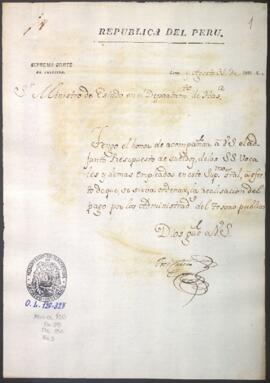 1
REPUBLICA DEL PERU.
SUPREMA CORTE
DE JUSTICIA.
Lima Agosto 31 de
Sr. Ministro de Estado en el Departam.to de Hda.
Tengo el honor de acompañar á US. el ad
junto Presupuesto de sueldos, de los SS. Voca
les y demas empleados en este Sup.mo Tral, á efec
to de que, se sirva ordenar, la realisacion del
pago por los Administrad.s del Tesoro publico.
Dios gue. á US.
O.L. 190-329